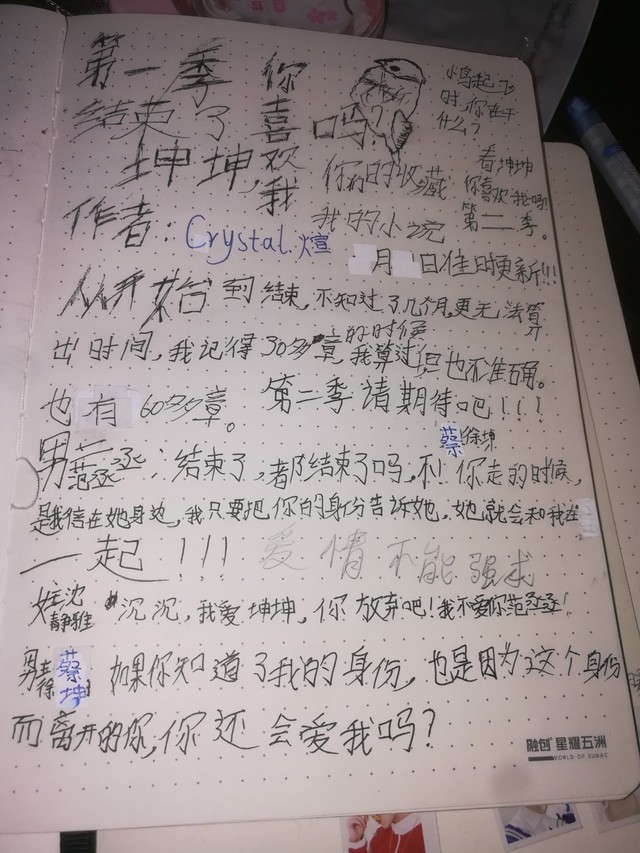 第一季 你
结束了 喜 吗?
坤坤,欢
我
小鸟起飞
时,你在干
什么?
看坤坤
你喜欢我吗
第二季。
你们的收藏
我的小说
作者:Crystal.煊
月 日准时更新!!!
从开始到结束,不知过了几个月,更无法算
出时间,我记得30多章的时候我算过但也不准确。
也有60多章。第二季请期待吧!!!
男二 蔡徐坤
范丞丞:结束了,都结束了吗,不!你走的时候,
是我陪在她身边,我只要把你的身份告诉她,她就会和我在
一起!!!爱情不能强求
女主沈
静雅 沉沉,我爱坤坤,你放弃吧!我不爱你范丞丞!
男主蔡
徐坤 如果你知道了我的身份,也是因为这个身份
而离开的你,你还会爱我吗?
融创 星耀五洲
WORLD OF SUNAC